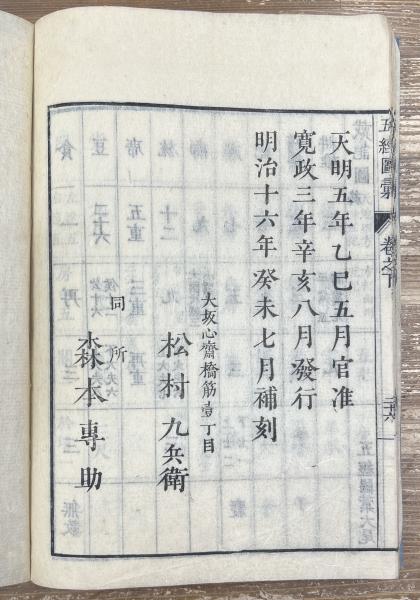 五經圖彙
卷之下
天明五年乙巳五月官准
寛政三年辛亥八月發行
明治十六年癸未七月補刻
大坂心齋橋筋壹丁目
松村九兵衛
同所
森本專助